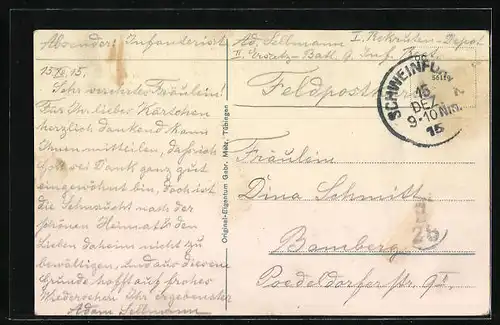 Absender: Infanterist Ad. Sellmann I. Rekruten-Depot
II. Ersatz-Batl. 9. Inf. Regt.
15.XII.15.
Sehr verehrtes Fräulein!
Für Ihr liebes Kärtchen
herzlich dankend kann
Ihnen mitteilen, daß ich
Gott sei Dank ganz gut
eingewöhnt bin, doch ist
die Sehnsucht nach der
schönen Heimat u. den
Lieben daheim nicht zu
bewältigen, und aus diesem
Grunde hofft auf frohes
Wiedersehen Ihr ergebenster
Adam Sellmann
Original-Eigentum Gebr. Metz, Tübingen
Feldpostkarte
SCHWEINFU
15
DEZ
9-10 Nm.
15
Fräulein
Dina Schmitt
Bamberg
Poedeldorfer str.
25